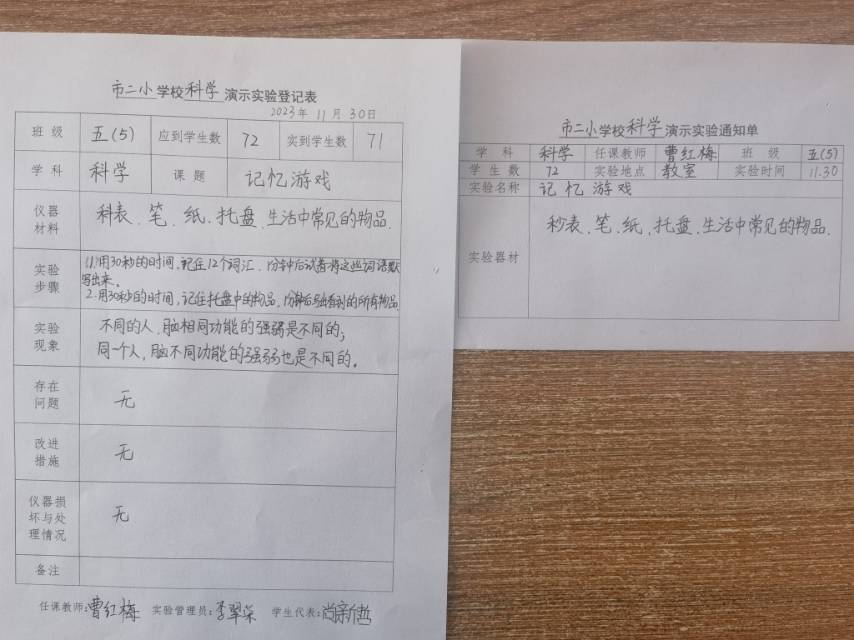 市二小学校科学演示实验登记表
2023年 11月 30日
班级 五(5) 应到学生数 72 实到学生数 71
学科 科学 课题 记忆游戏
仪器材料 科表、笔、纸、托盘、生活中常见的物品.
实验步骤 (1)用30秒的时间,记住12个词汇,1分钟后试着将这些词语默
写出来。
2.用30秒的时间,记住托盘中的物品,1分钟后写出看到的所有物品
实验现象 不同的人,脑相同功能的强弱是不同的;
同一个人,脑不同功能的强弱也是不同的。
存在问题 无
改进措施 无
仪器损坏与处理情况 无
备注
任课教师:曹红梅 实验管理员:李翠荣 学生代表:尚新哲
市二小学校科学演示实验通知单
学科 科学 任课教师 曹红梅 班级 五(5)
学生数 72 实验地点 教室 实验时间 11.30
实验名称 记忆游戏
实验器材 秒表、笔、纸、托盘、生活中常见的物品.